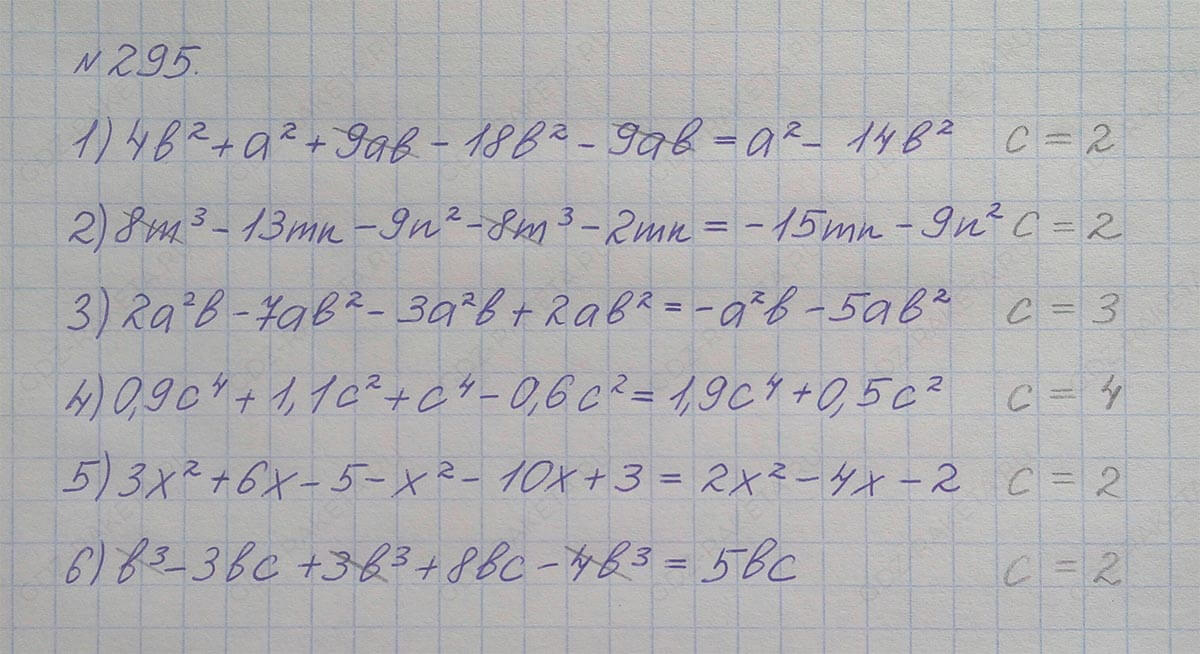 № 295.
1) 4b² + a² + 9ab - 18b² - 9ab = a² - 14b² c = 2
2) 8m³ - 13mn - 9n² - 8m³ - 2mn = -15mn - 9n² c = 2
3) 2a²b - 7ab² - 3a²b + 2ab² = -a²b - 5ab² c = 3
4) 0,9c⁴ + 1,1c² + c⁴ - 0,6c² = 1,9c⁴ + 0,5c² c = 4
5) 3x² + 6x - 5 - x² - 10x + 3 = 2x² - 4x - 2 c = 2
6) b³ - 3bc + 3b³ + 8bc - 4b³ = 5bc c = 2